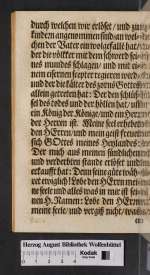 durch welchen wir erlöset / und zu
kindern angenommen sind an wel-
chem der Vater ein wolgefallt hat /
der die völcker mit dem schwerdt sei-
nes mundes schlagen / und mit ei-
nem eisernen scepter regieren werde /
und der die kälter des zorns Gottes
allein getreten hat: Der den schlüs-
sel des todes und der höllen hat / und
ein König der Könige / und ein Herr
der Herren ist. Meine seel erhebet
den HErren / und mein geist freuet
sich GOttes meines Heylandes:
Der mich aus meinem sündlichen
und verderbten stande erlöset und
erkaufft hat: Denn seine güte
waret ewiglich! Lobe den HErrn mei-
ne seele und alles was in mir ist sei-
nen H. Namen: Lobe den HErrn
meine seele / und vergiß nicht / was
Herzog August Bibliothek Wolfenbüttel
Kodak